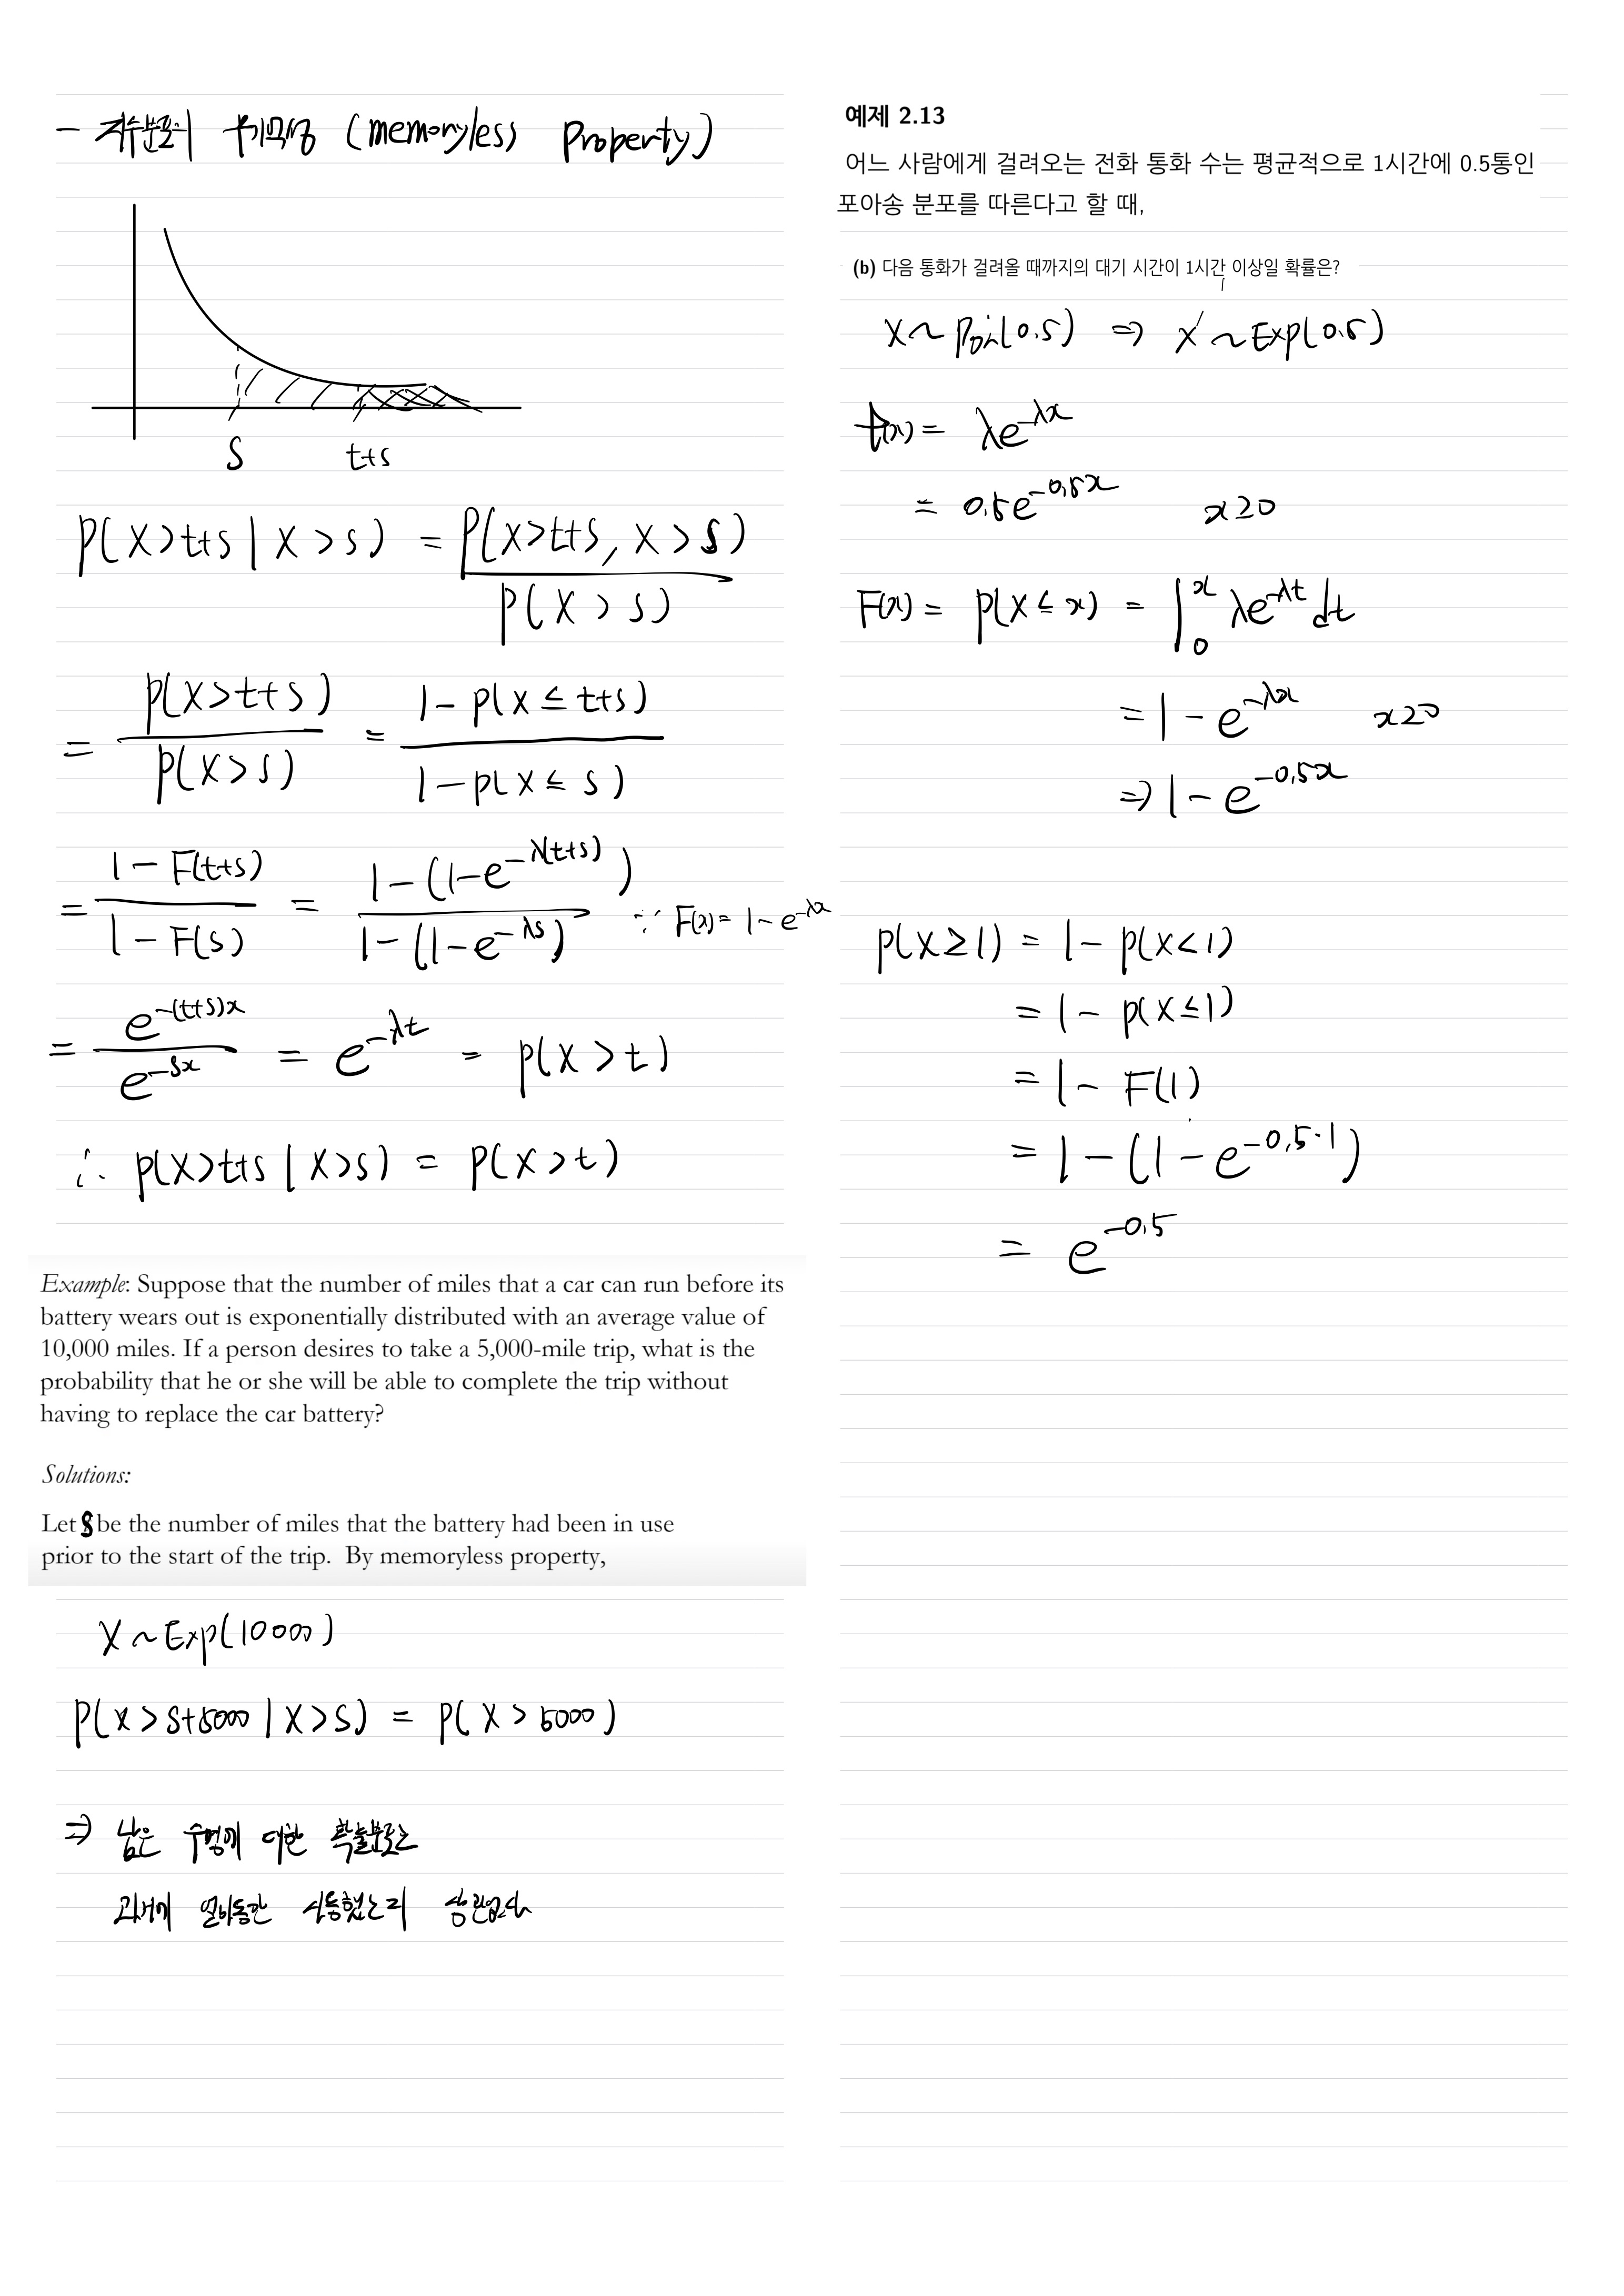 - 지수분포의 무기억성 (memoryless property)
S t+s
P(X>t+s | X>s) = P(X>t+s, X>s) / P(X>s)
= P(X>t+s) / P(X>s) = 1-P(X≤t+s) / 1-P(X≤s)
= 1-F(t+s) / 1-F(s) = 1-(1-e^-λ(t+s)) / 1-(1-e^-λs) ∵ F(x)= 1-e^-λx
= e^-(t+s)x / e^-sx = e^-λt = P(X>t)
∴ P(X>t+s | X>s) = P(X>t)
Example: Suppose that the number of miles that a car can run before its
battery wears out is exponentially distributed with an average value of
10,000 miles. If a person desires to take a 5,000-mile trip, what is the
probability that he or she will be able to complete the trip without
having to replace the car battery?
Solutions:
Let S be the number of miles that the battery had been in use
prior to the start of the trip. By memoryless property,
X~Exp(10000)
P(X>s+5000 | X>s) = P(X>5000)
⇒ 남은 수명에 대한 확률분포는
과거에 얼마동안 사용했는지 상관없다
예제 2.13
어느 사람에게 걸려오는 전화 통화 수는 평균적으로 1시간에 0.5통인
포아송 분포를 따른다고 할 때,
(b) 다음 통화가 걸려올 때까지의 대기 시간이 1시간 이상일 확률은?
X~Poi(0.5) ⇒ X'~Exp(0.5)
f(x) = λe^-λx
= 0.5e^-0.5x x≥0
F(x) = P(X≤x) = ∫₀ˣ λe^-λt dt
= 1-e^-λx x≥0
⇒ 1-e^-0.5x
P(X≥1) = 1-P(X<1)
= 1-P(X≤1)
= 1-F(1)
= 1-(1-e^-0.5·1)
= e^-0.5